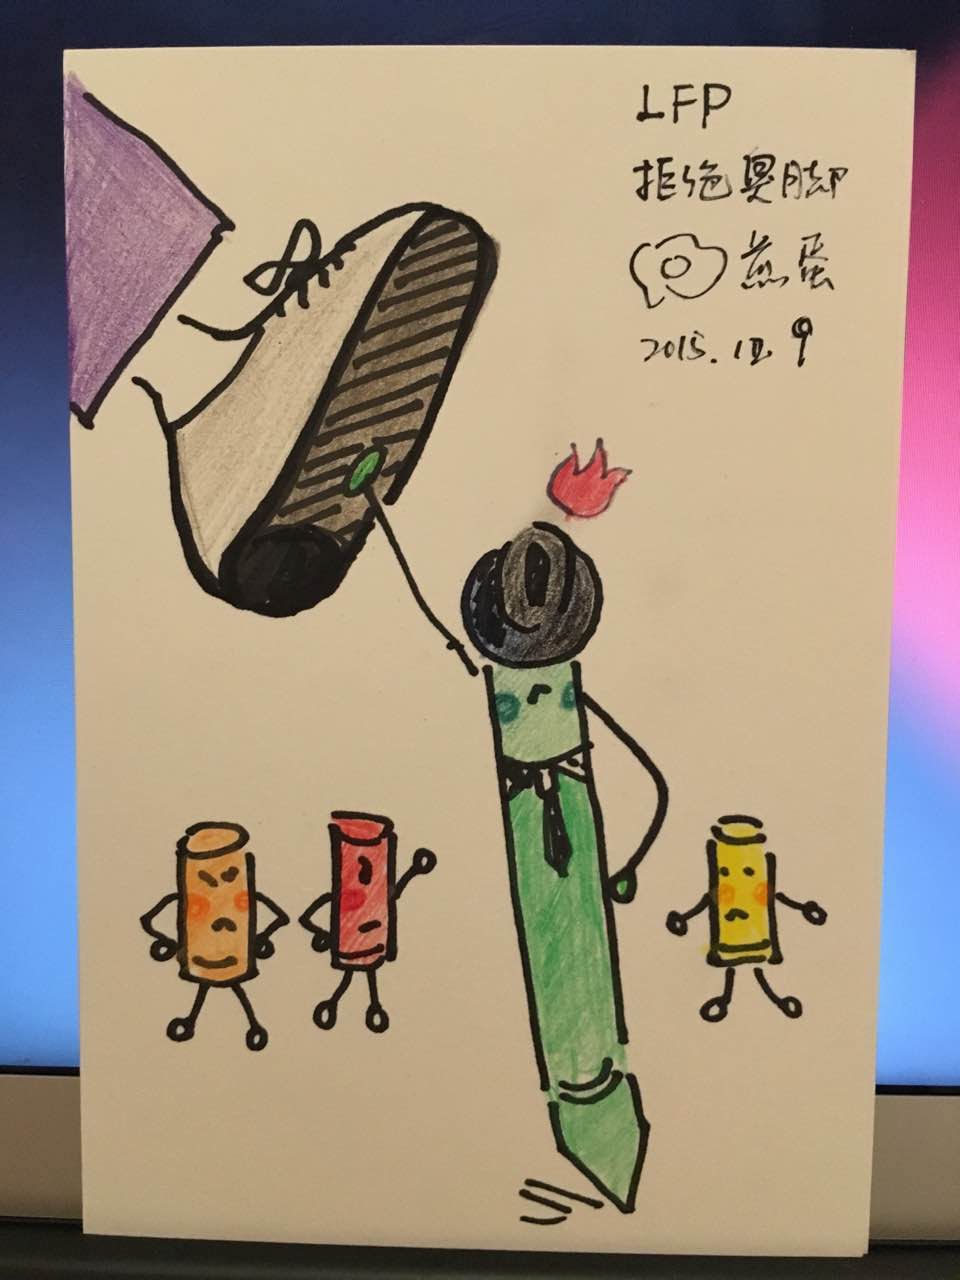 LFP
拒绝臭脚
煎蛋
2015.12.9